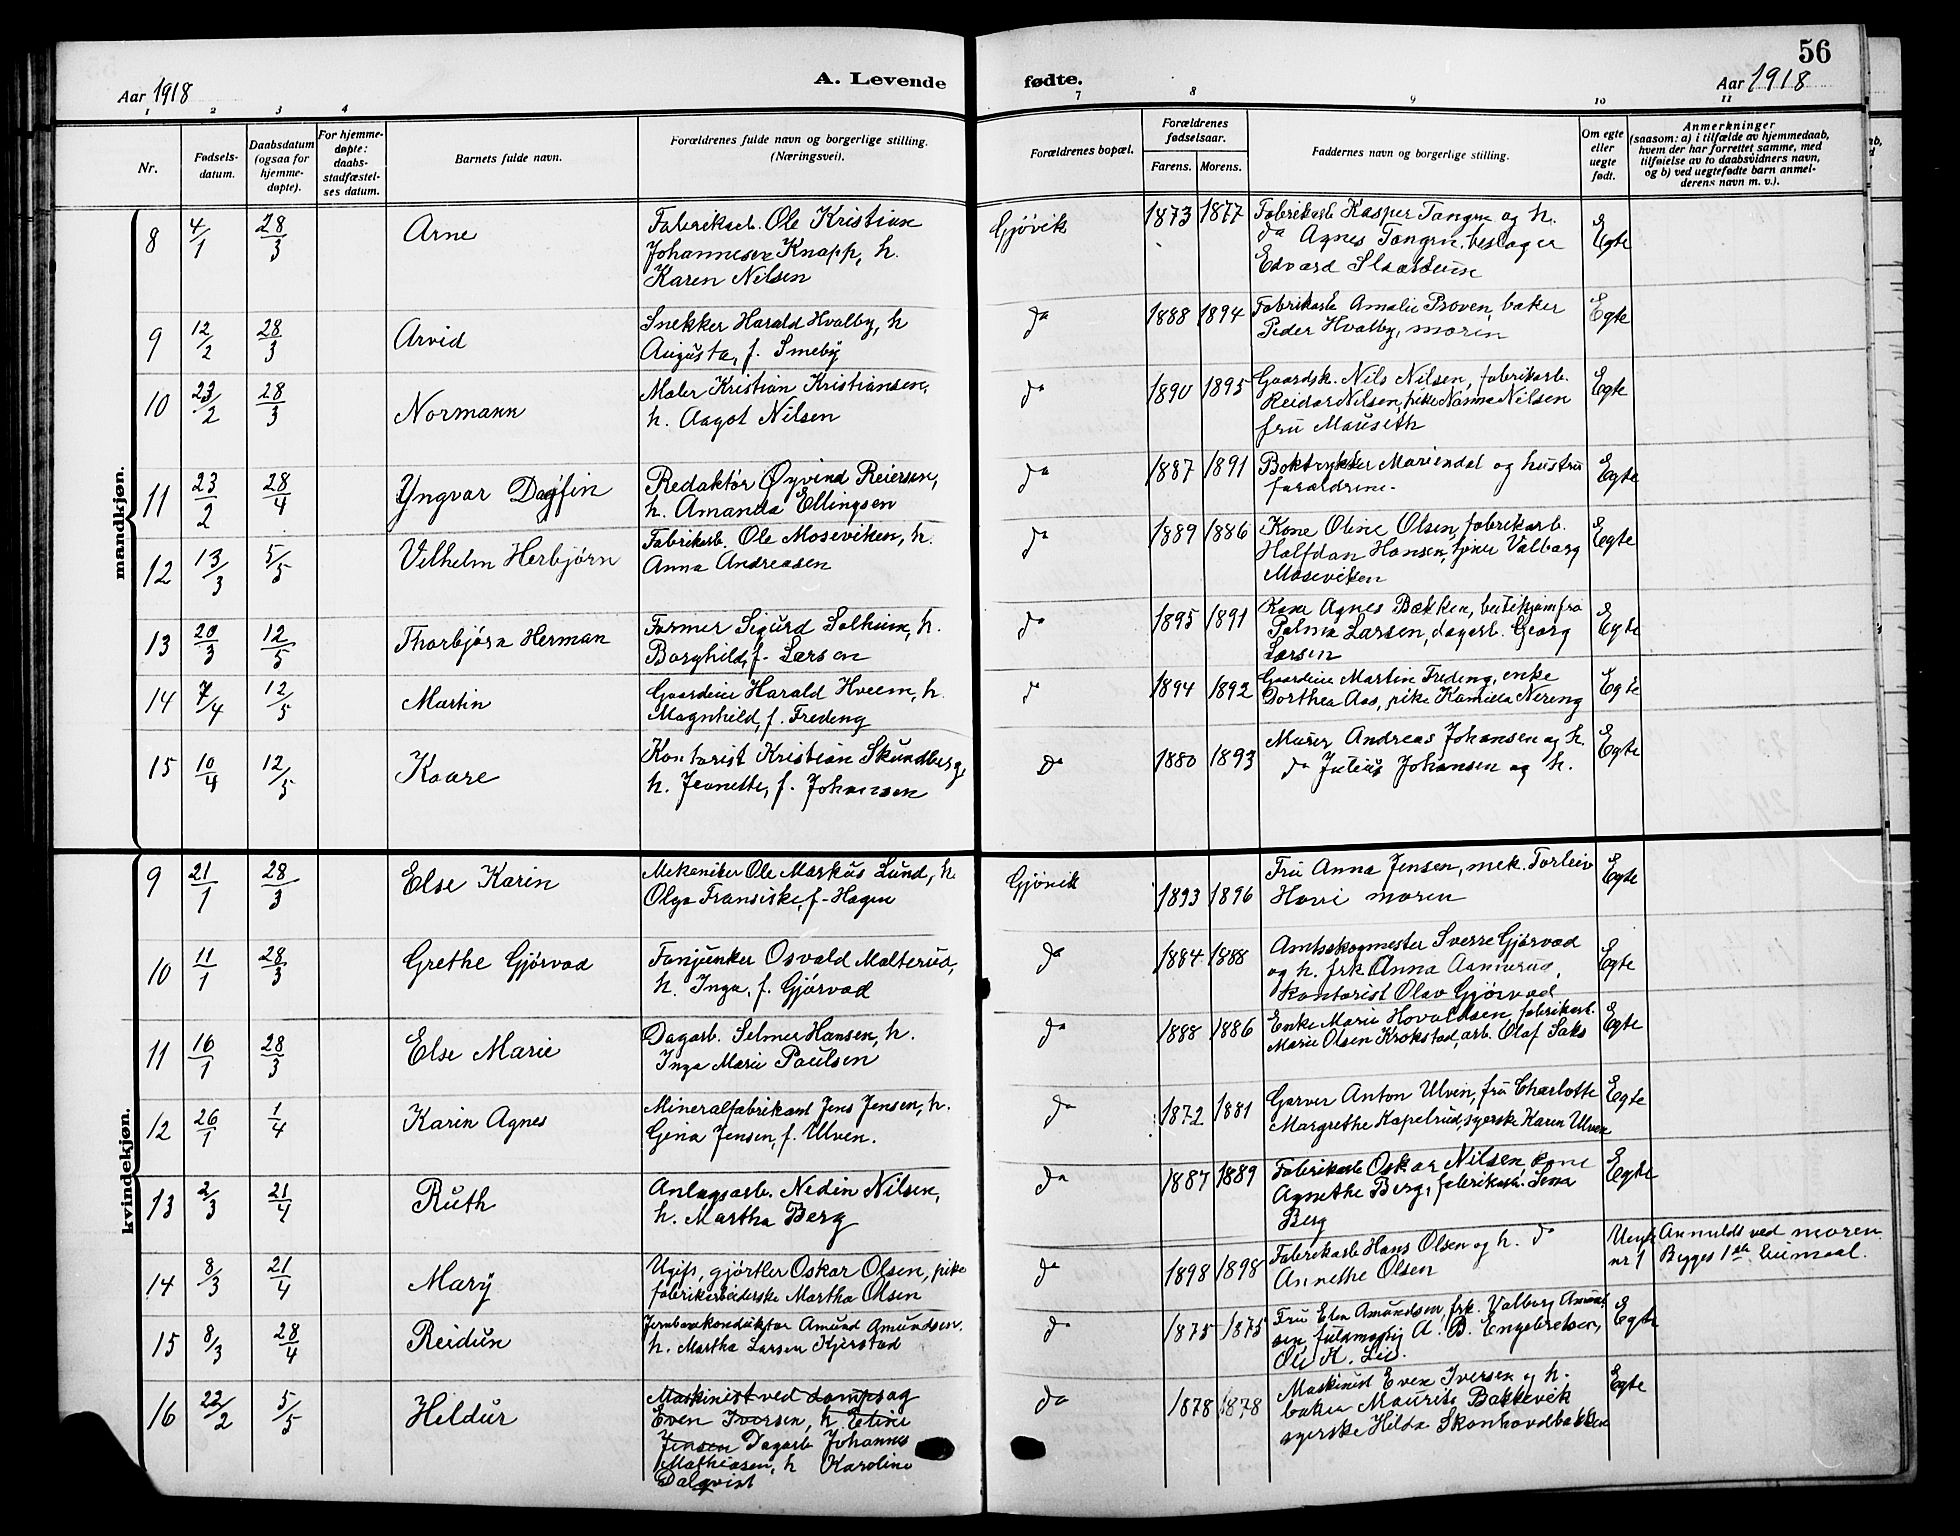 56
Aar 1918
A. Levende
fødte.
Aar 1918
1 2 3 4
7 8 9 10 11
Nr.
Fødsels-
datum.
Daabsdatum
(ogsaa for
hjemme-
døpte).
For hjemme-
døpte:
daabs-
stadfæstel-
ses datum.
Barnets fulde navn.
Forældrenes fulde navn og borgerlige stilling.
(Næringsvei).
Forældrenes bopæl.
Forældrenes
fødselsaar.
Farens. Morens.
Faddernes navn og borgerlige stilling.
Om egte
eller
uegte
født.
Anmerkninger
(saasom: a) i tilfælde av hjemmedaab,
hvem der har forrettet samme, med
tilføielse av to daabsvidners navn,
og b) ved uegtefødte barn anmel-
derens navn m. v.).
mandkjøn.
8 4/1 28/3 Arne
Fabrikarb. Ole Kristian
Johannesen Knapp, h.
Karen Nilsen
Gjøvik 1873 1877
Fabrikarb Kasper Tangen og h.
do Agnes Tangen, beslager
Edvard
Egte
9 12/2 28/3 Arvid
Snekker Harald Hvalby, h
Augusta, f. Smeby
do 1888 1894
Fabrikarb Amalie Proven, baker
Peder Hvalby, moren
Egte
10 23/2 28/3 Normann
Maler Kristian Kristiansen,
h. Aagot Nilsen
do 1890 1895
Gaardsk. Nils Nilsen, fabrikarb.
Reidar Nilsen, pike Nanna Nilsen
fru Mauseth
Egte
11 23/2 28/4 Yngvar Dagfin
Redaktør Øyvind Reiersen,
h. Amanda Ellingsen
do 1887 1891
Boktrykker Mariendal og hustru
forældrene.
Egte
12 13/3 5/5 Vilhelm Herbjørn
Fabrikarb. Ole Moseviken, h.
Anna Andreasen
do 1889 1886
Kone Oline Olsen, fabrikarb.
Halfdan Hansen, Valborg
Moseviken
Egte
13 20/3 12/5 Thorbjørn Herman
Former Sigurd Solheim, h.
Borghild, f. Larsen
do 1895 1891
Kone Agnes Bækken, butikjomfru
Palma Larsen, dagarb. Georg
Larsen
Egte
14 7/4 12/5 Martin
Gaardeier Harald Hveem, h.
Magnhild, f. Freding
do 1894 1892
Gaardeier Martin Freding, enke
Dorthea Aas, pike Kamilla Nereng
Egte
15 10/4 12/5 Kaare
Kontorist Kristian Skundberg,
h. Jeanette, f. Johansen
Do 1880 1893
Murer Andreas Johansen og h.
do Julius Johansen og h.
Egte
kvindekjøn.
9 21/1 28/3 Else Karin
Mekaniker Ole Markus Lund, h.
Olga Fransiske, f. Hagen
Gjøvik 1893 1896
Fru Anna Jensen, mek. Torleiv
Hovi moren
Egte
10 11/1 28/3 Grethe Gjørvad
Fanjunker Osvald Malterud,
h. Inga, f. Gjørvad
do 1884 1888
Amtsskogmester Sverre Gjørvad
og h. frk Anna Aamerud,
Kontorist Olav Gjørvad
Egte
11 16/1 28/3 Else Marie
Dagarb. Selmer Hansen, h.
Inga Marie Paulsen
do 1888 1886
Enke Marie Hovaldsen, fabrikarb.
Marie Olsen Krokstad, arb. Olaf Saks
Egte
12 26/1 1/4 Karin Agnes
Mineralfabrikant Jens Jensen, h.
Gina Jensen, f. Ulven.
do 1872 1881
Garver Anton Ulven, fru Charlotte
Margrethe Kapelrud, syerske Karen Ulven
Egte
13 2/3 21/4 Ruth
Anlegsarb. Nedin Nilsen,
h. Martha Berg
do 1887 1889
Fabrikarb Oskar Nilsen, kone
Agnethe Berg, fabrikarb. Lina
Berg
Egte
14 8/3 21/4 Mary
Ugift, gjørtler Oskar Olsen, pike
fabrikarbeiderske Martha Olsen
do 1898 1898
Fabrikarb Hans Olsen og h. do
Annethe Olsen
Uegte
nr 1
Anmeldt ved moren
Begges 1ste leiermaal.
15 8/3 28/4 Reidun
Jernbanekonduktør Amund Amundsen.
h. Martha Larsen Kjerstad
do 1875 1875
Fru Elen Amundsen, frk. Valborg Amund
sen, fuldmægtig A. B. Engebretsen,
Ole K. Lie.
Egte
16 22/2 5/5 Heldur
Maskinist ved dampsag
Even Iversen, h. Eline
Jensen Dagarb Johannes
Mathiasen, h Karoline
Dalqvist
do 1878 1878
Maskinist Even Iversen og h.
baker Maurits Bakkevik
syerske Hilda Skonhovdbakken
Egte